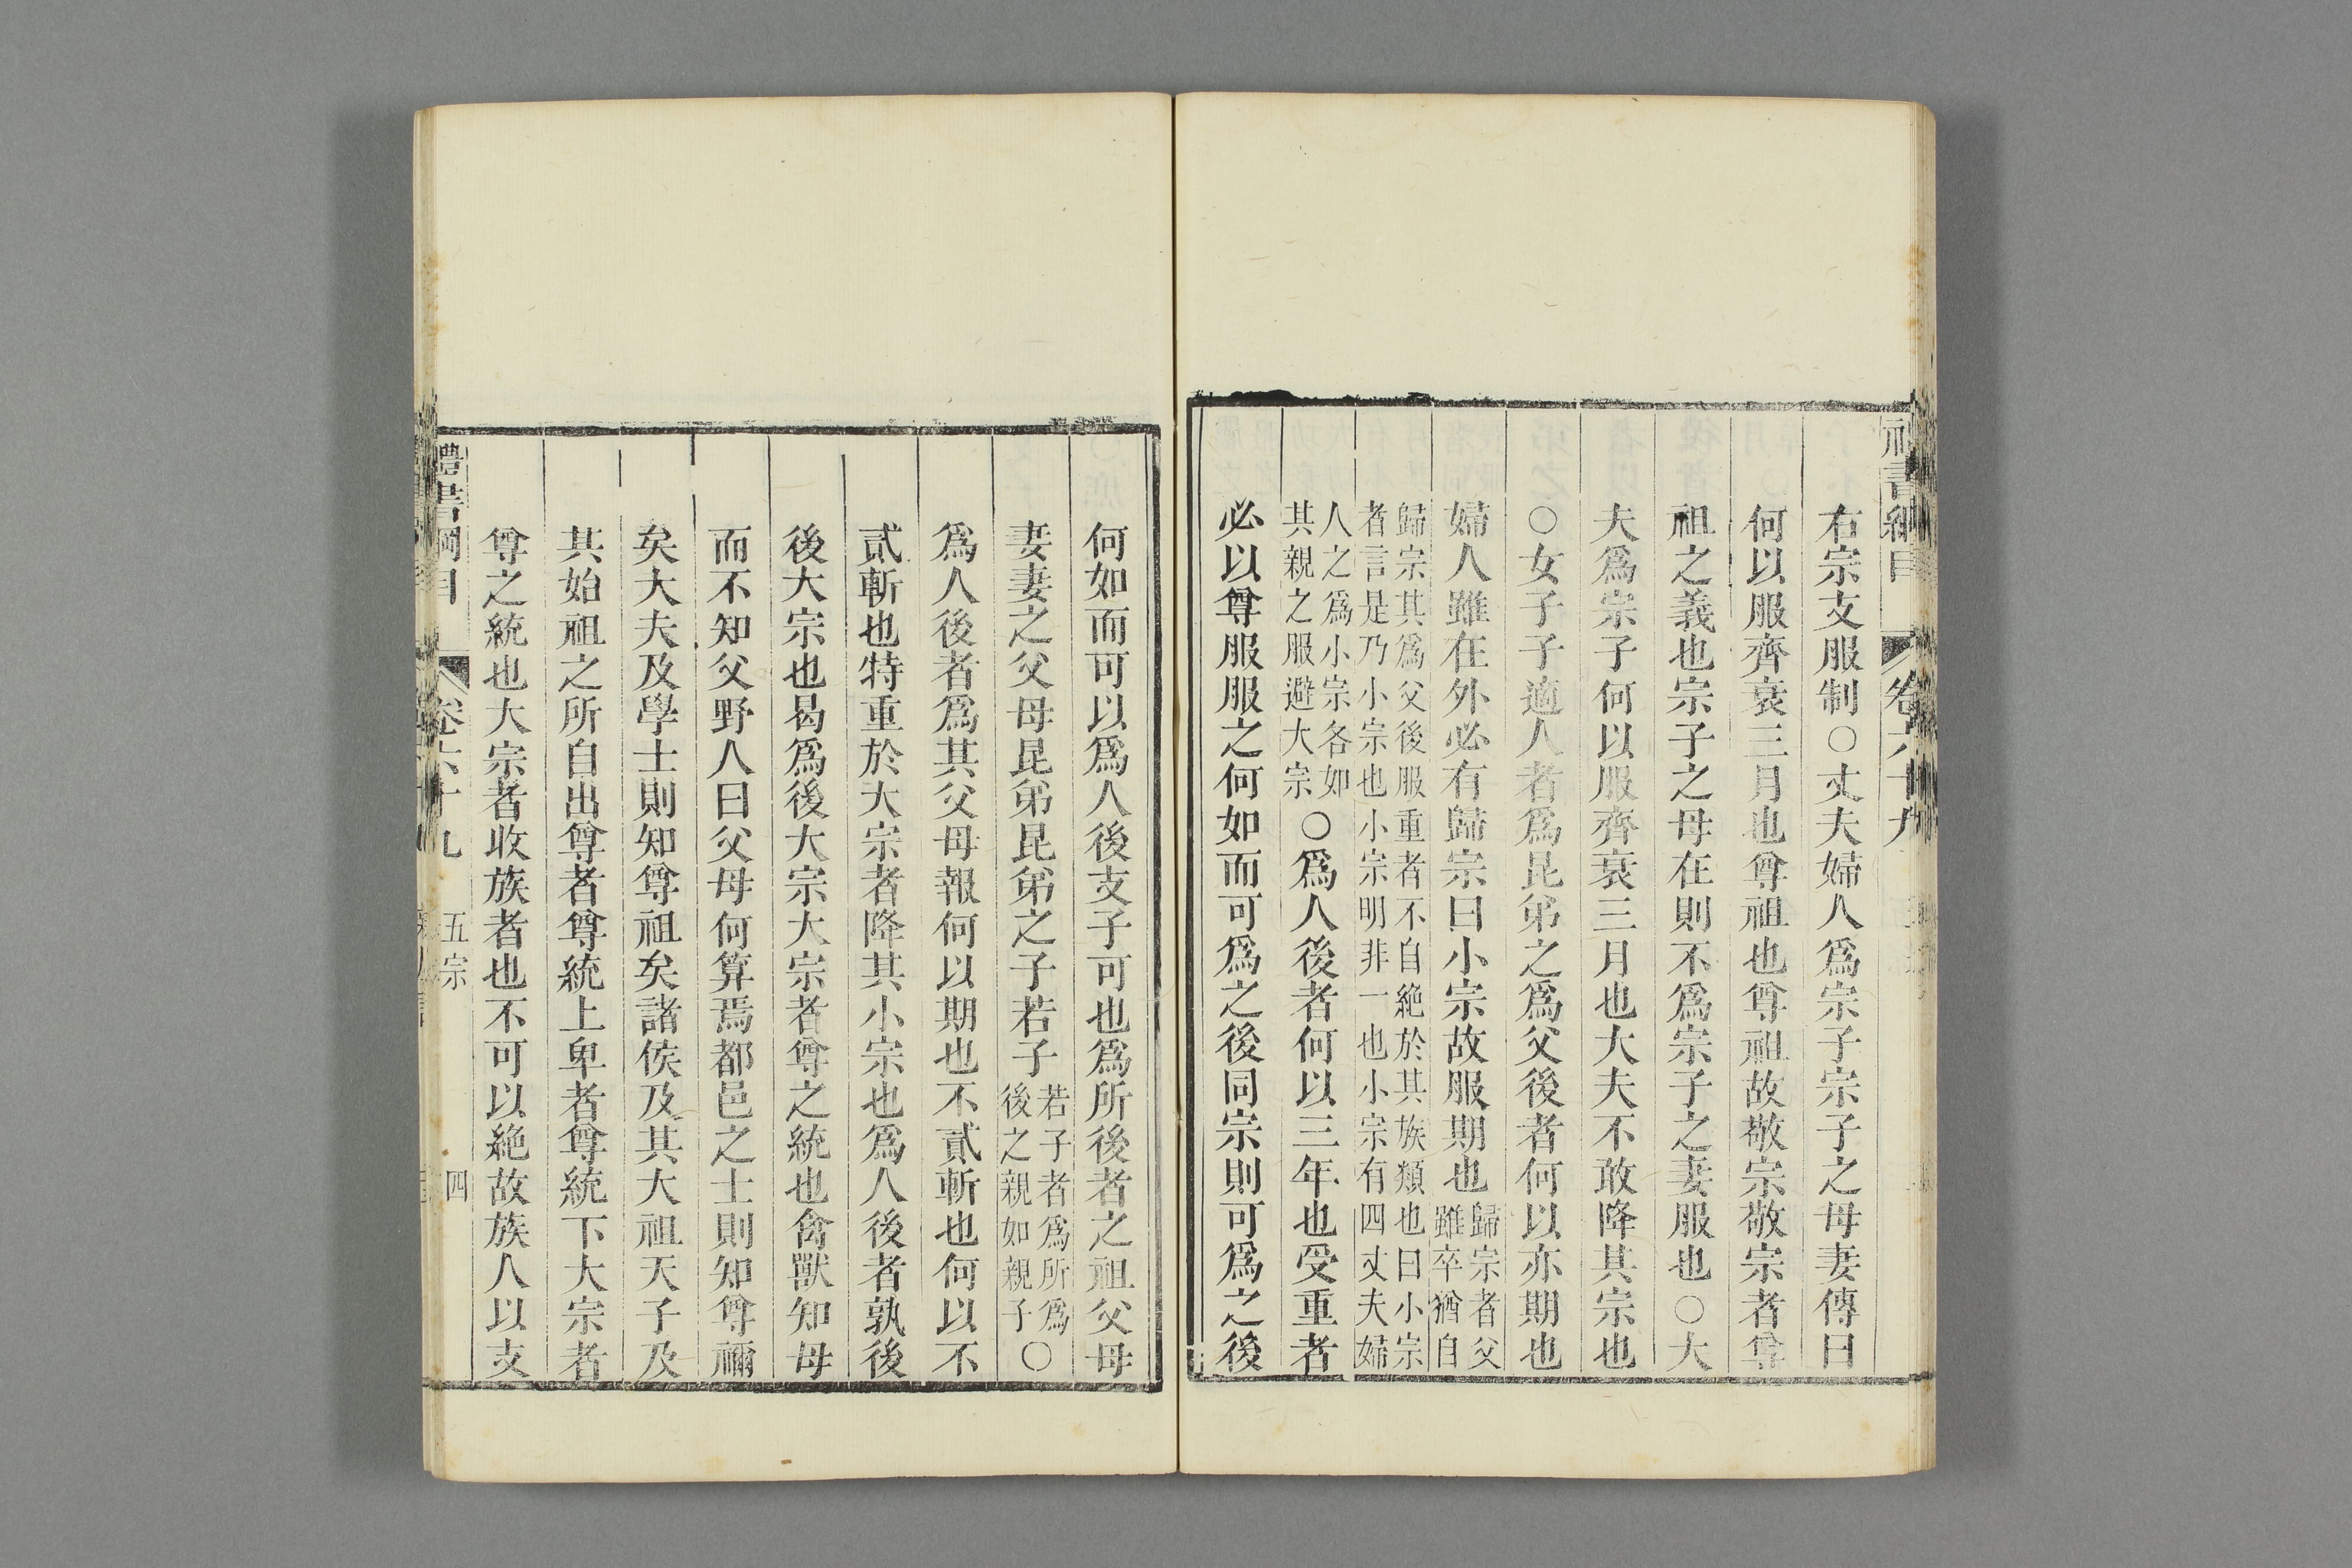 禮書綱目 卷六十九
右宗支服制○丈夫婦人爲宗子宗子之母妻傳曰
何以服齊衰三月也尊祖也尊祖故敬宗敬宗者尊
祖之義也宗子之母在則不爲宗子之妻服也○大
夫爲宗子何以服齊衰三月也大夫不敢降其宗也
○女子子適人者爲昆弟之爲父後者何以亦期也
婦人雖在外必有歸宗曰小宗故服期也歸宗者父雖卒猶自
歸宗其爲父後服重者不自絶於其族類也曰小宗
者言是乃小宗也小宗明非一也小宗有四丈夫婦
人之爲小宗各如其親之服避大宗○爲人後者何以三年也受重者
必以尊服服之何如而可爲之後同宗則可爲之後
何如而可以爲人後支子可也爲所後者之祖父母
妻妻之父母昆弟昆弟之子若子若子者爲所爲後之親如親子○
爲人後者爲其父母報何以期也不貳斬也何以不
貳斬也特重於大宗者降其小宗也爲人後者孰後
後大宗也曷爲後大宗大宗者尊之統也禽獸知母
而不知父野人曰父母何算焉都邑之士則知尊禰
矣大夫及學士則知尊祖矣諸侯及其大祖天子及
其始祖之所自出尊者尊統上卑者尊統下大宗者
尊之統也大宗者收族者也不可以絶故族人以支
禮書綱目 卷六十九 五宗 四